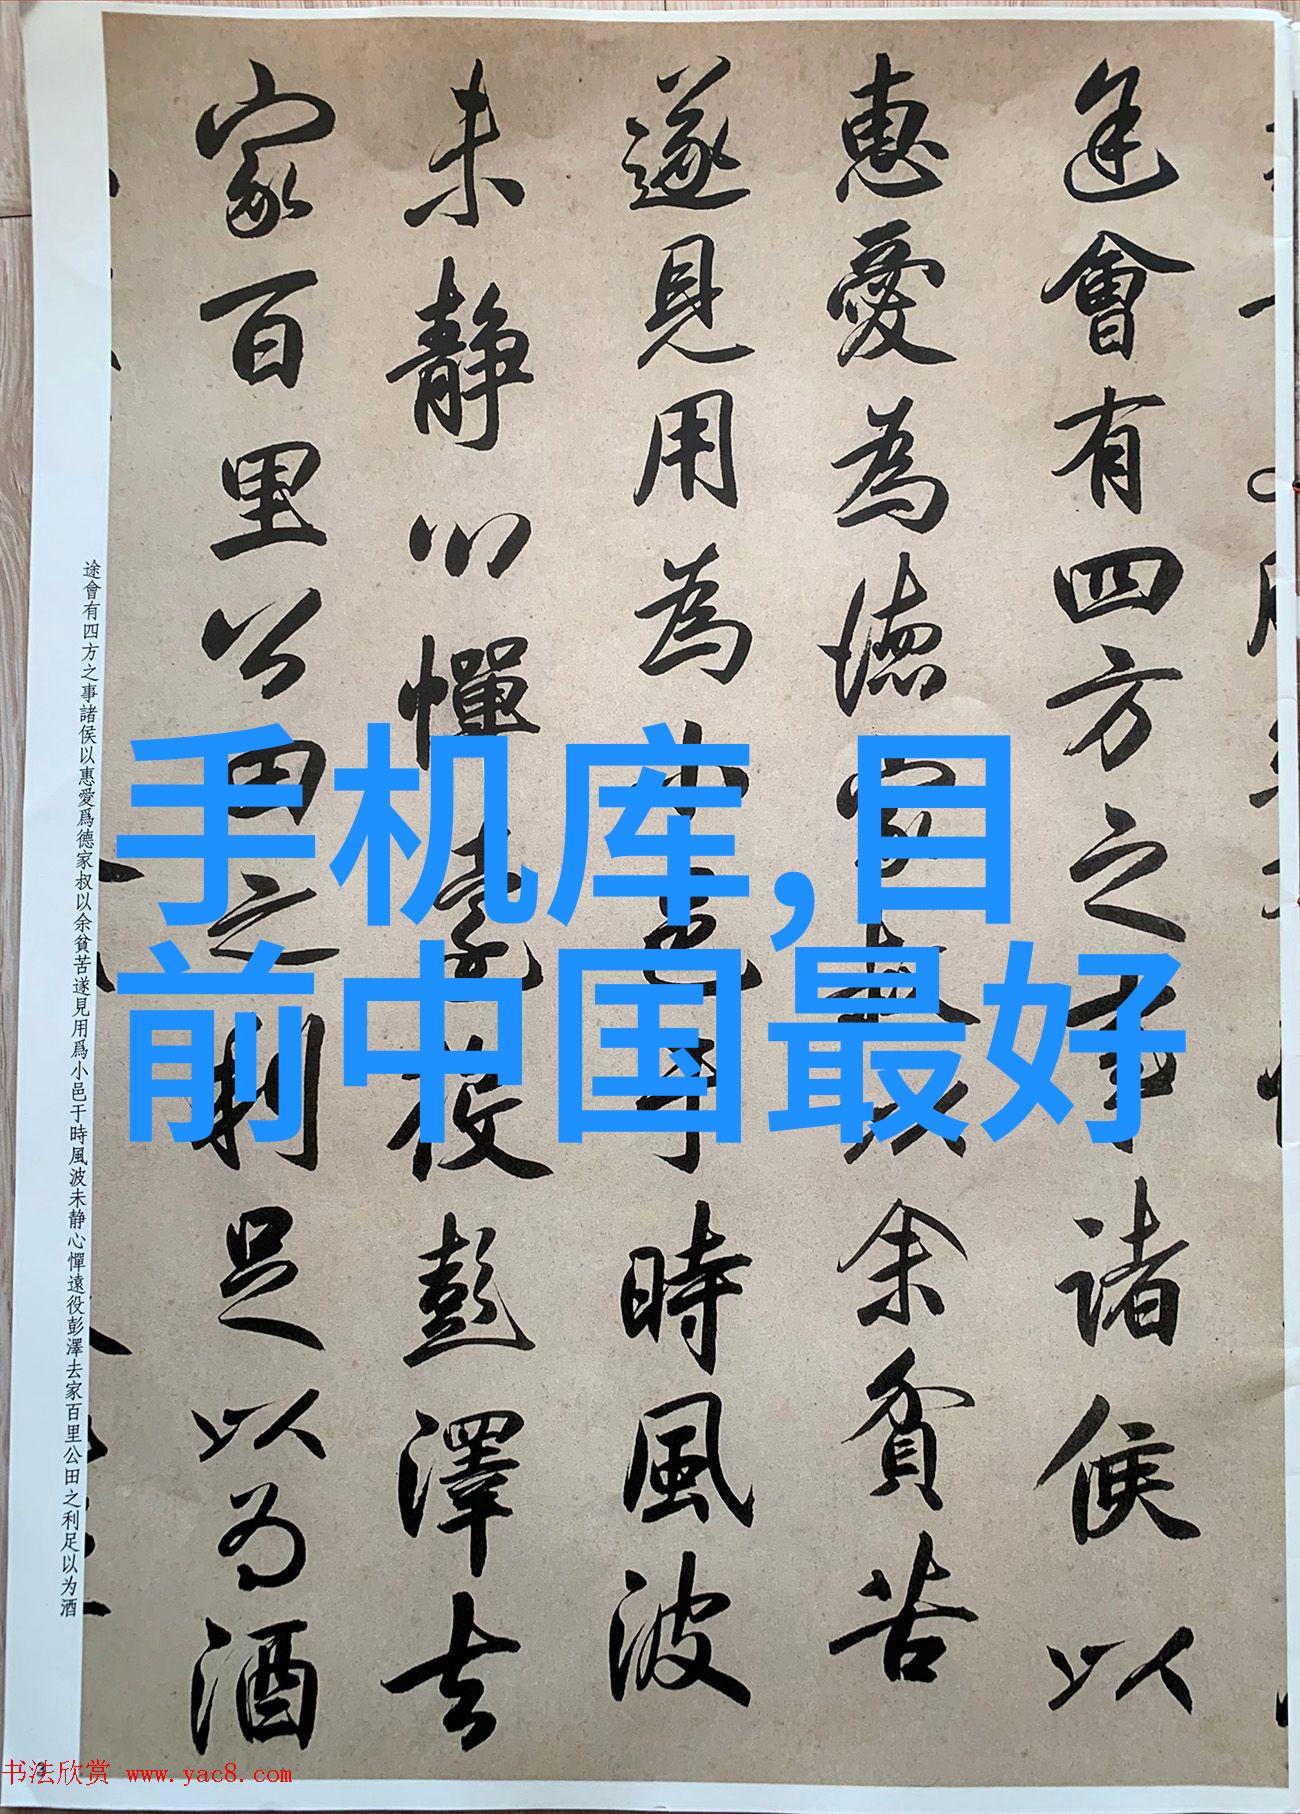 途會有四方之事諸侯以
惠愛為德家叔以余貧苦
遂見用為小邑于時風波
未静心憚遠役彭澤去
家百里公田之利足以为酒
手机库,目
前中国最好
途會有四方之事諸侯以惠愛爲德家叔以余貧苦遂見用爲小邑于時風波未静心憚遠役彭澤去家百里公田之利足以为酒
3
书法欣赏 www.yac8.com